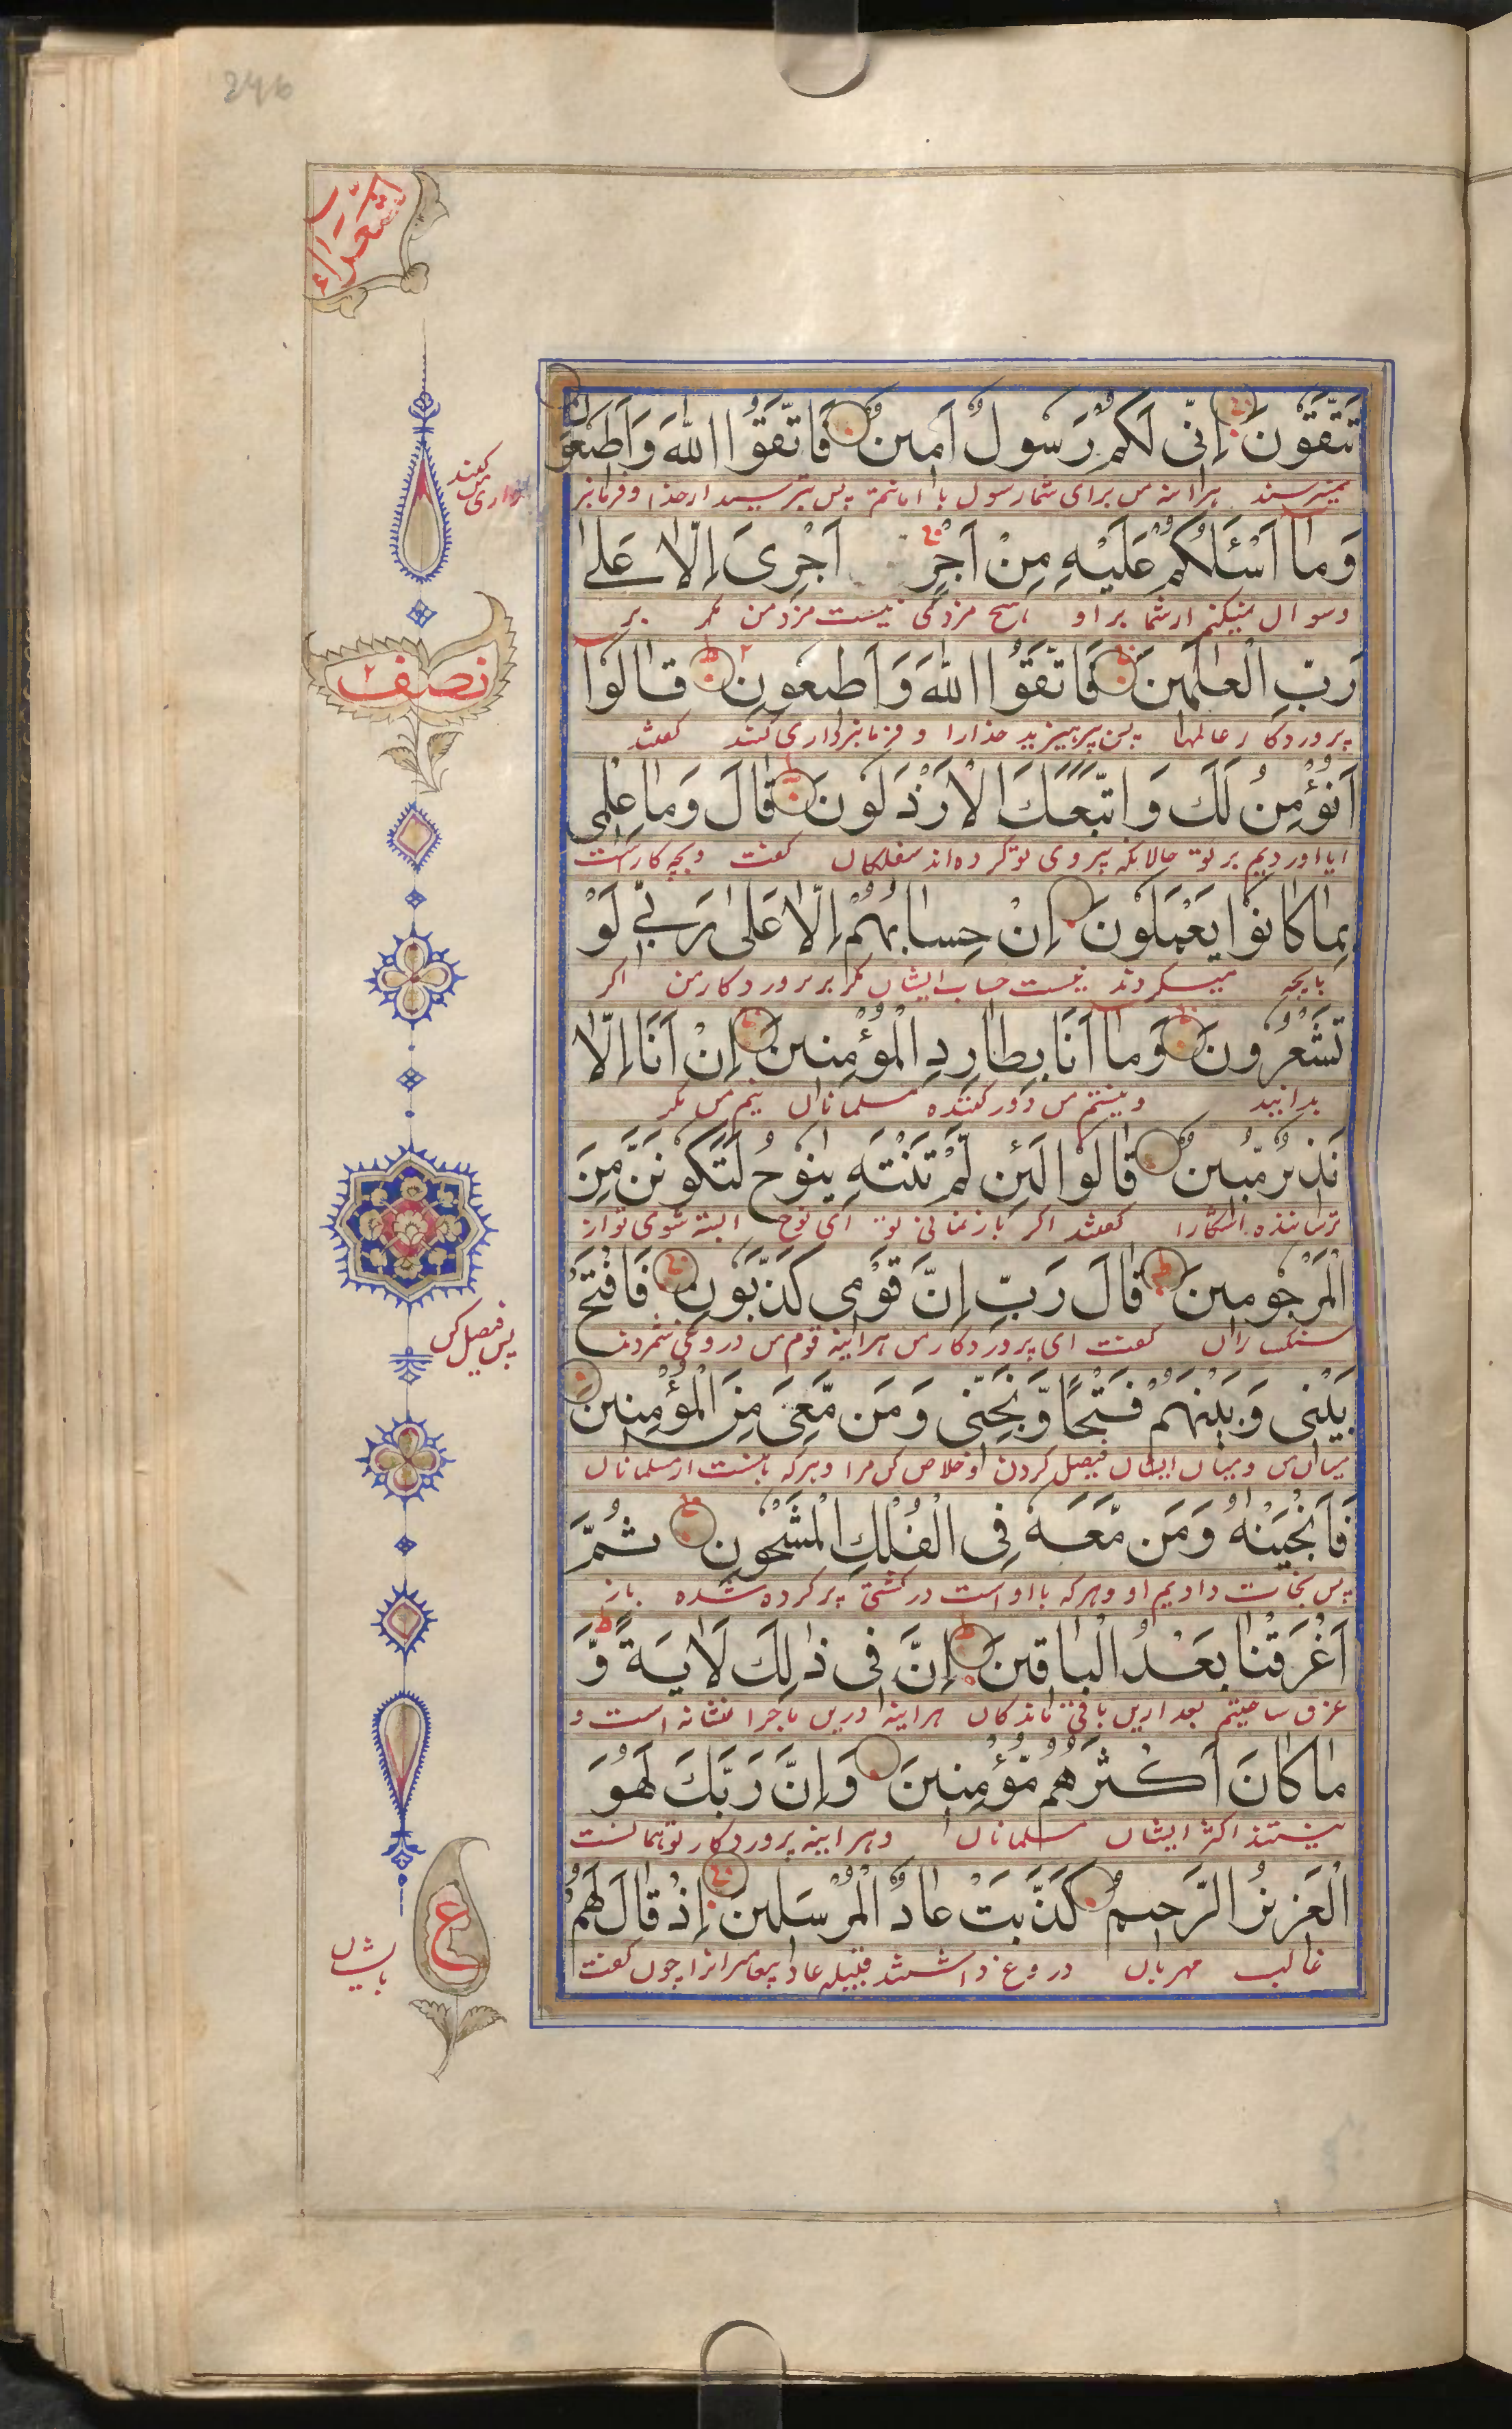 246
الشعراء
تَتَّقُونَ اِنِّى لَكُمْ رَسُولٌ اَمينٌ فَاتَّقُوا اللّٰهَ وَاَطيعُونِ
نميترسند هراینه من برای شما رسول با امانتم پس بترسید از خدا و فرمانبر
کنند
واری من
وَمٰا اَسْئَلُكُمْ عَلَيْهِ مِنْ اَجْرٍ اَجْرِىَ اِلّٰا عَلىٰ
وسوال نمیکنم از شما بر او هیچ مزدی نیست مزد من مگر بر
رَبِّ الْعٰلَمينَ فَاتَّقُوا اللّٰهَ وَ اَطيعُونِ قٰالُوا
پروردکار عالمها پس پرهیزید خدارا و فرمانبرداری کنند کفتند
نصف ٢
اَنُؤْمِنُ لَكَ وَ اتَّبَعَكَ الْاَرْذَلُونَ قٰالَ وَمٰا عِلْمى
ایا اوردیم بر تو حالانکه پیروی تو کرده اند سفلکان کفت و بچه کار است
بِمٰا كٰانُوا يَعْمَلُونَ اِنْ حِسٰابُهُمْ اِلّٰا عَلىٰ رَبّى لَوْ
بانچه میکردند نیست حساب ایشان مکر بر پروردکار من اکر
تَشْعُرُونَ وَمٰا اَنَا بِطٰارِدِ الْمُؤْمِنينَ اِنْ اَنَا اِلّٰا
بدانید و نیستم من دور کننده مسلمانان نیم من مکر
نَذيرٌ مُّبينٌ قٰالُوا لَئِن لَّمْ تَنْتَهِ يٰنُوحُ لَتَكُونَنَّ مِنَ
ترساننده اشکارا کفتند اکر باز نمانی تو ای نوح البته شوی تو از
الْمَرْجُومينَ قٰالَ رَبِّ اِنَّ قَوْمى كَذَّبُونِ فَافْتَحْ
سنکساران کفت ای پروردکار من هراینه قوم من دروغی شمردند
پس فیصل کن
بَيْنى وَ بَيْنَهُمْ فَتْحًا وَّ نَجِّنى وَ مَن مَّعِىَ مِنَ الْمُؤْمِنينَ
میان من و میان ایشان فیصل کردن و خلاص کن مرا و هرکه بامنست از مسلمانان
فَاَنْجَيْنٰهُ وَ مَن مَّعَهُ فِى الْفُلْكِ الْمَشْحُونِ ثُمَّ
پس نجات دادیم او و هرکه با او است در کشتی پر کرده شده باز
اَغْرَقْنٰا بَعْدُ الْبٰاقينَ اِنَّ فى ذٰلِكَ لَاٰيَةً وَّ
غرق ساختیم بعد ازین باقی ماندکان هراینه درین ماجرا نشانه است و
مٰا كٰانَ اَكْثَرُهُمْ مُّؤْمِنينَ وَ اِنَّ رَبَّكَ لَهُوَ
نیستند اکثر ایشان مسلمانان و هراینه پروردکار تو همانست
الْعَزيزُ الرَّحيمُ كَذَّبَتْ عٰادٌ الْمُرْسَلينَ اِذْ قٰالَ لَهُمْ
غالب مهربان دروغ داشتند قبیله عاد پیغامبرانرا چون کفت
ع
بایشان